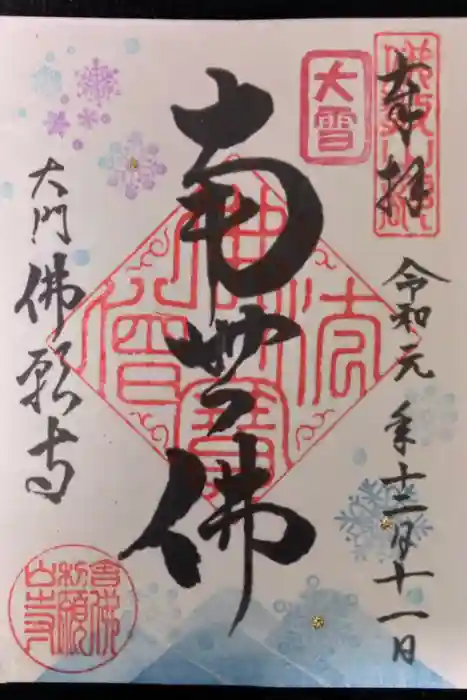 奉拝
令和元年十二月十一日
大雪
南無佛
佛法僧寶
大門
佛願寺